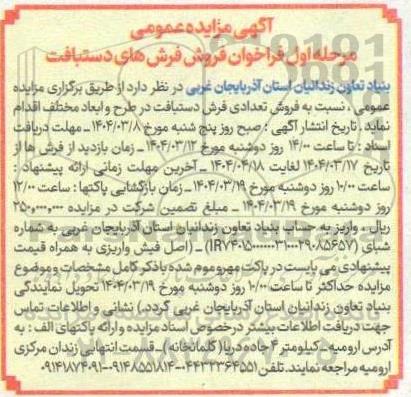 آگهی مزایده عمومی
مرحله اول فراخوان فروش فرش های دستبافت
بنیاد تعاون زندانیان استان آذربایجان غربی در نظر دارد از طریق برگزاری مزایده
عمومی، نسبت به فروش تعدادی فرش دستبافت در طرح و ابعاد مختلف اقدام
نماید. تاریخ انتشار آگهی: صبح روز پنج شنبه مورخ ۱۴۰۴/۰۳/۸ ـ مهلت دریافت
اسناد: تا ساعت ۱۴/۰۰ روز دوشنبه مورخ ۱۴۰۴/۰۳/۱۲ ـ زمان بازدید از فرش ها از
تاریخ ۱۴۰۴/۰۳/۱۷ لغایت ۱۴۰۴/۰۴/۱۸ ـ آخرین مهلت زمانی ارائه پیشنهاد:
ساعت ۱۰/۰۰ روز دوشنبه مورخ ۱۴۰۴/۰۳/۱۹ ـ زمان بازگشایی پاکتها: ساعت ۱۲/۰۰
روز دوشنبه مورخ ۱۴۰۴/۰۳/۱۹ ـ مبلغ تضمین شرکت در مزایده ۲۵۰,۰۰۰,۰۰۰
ریال. واریز به حساب بنیاد تعاون زندانیان استان آذربایجان غربی به شماره
شبای ـ (اصل فیش واریزی به همراه قیمت
پیشنهادی می بایست در پاکت مهر و موم شده با ذکر کامل مشخصات و موضوع
مزایده حداکثر تا ساعت ۱۰/۰۰ روز دوشنبه مورخ ۱۴۰۴/۰۳/۱۹ تحویل نمایندگی
بنیاد تعاون زندانیان استان آذربایجان غربی گردد.) نشانی و اطلاعات تماس
جهت دریافت اطلاعات بیشتر درخصوص اسناد مزایده و ارائه پاکتهای الف: به
آدرس ارومیه ـ کیلومتر ۴ جاده دریا (گلمانخانه) ـ قسمت انتهایی زندان مرکزی
ارومیه مراجعه نمایند. تلفن ۰۴۴۳۲۳۶۴۵۵۱-۰۹۱۴۸۵۵۱۸۱۴-۰۹۱۴۱۸۷۴۰۹۱